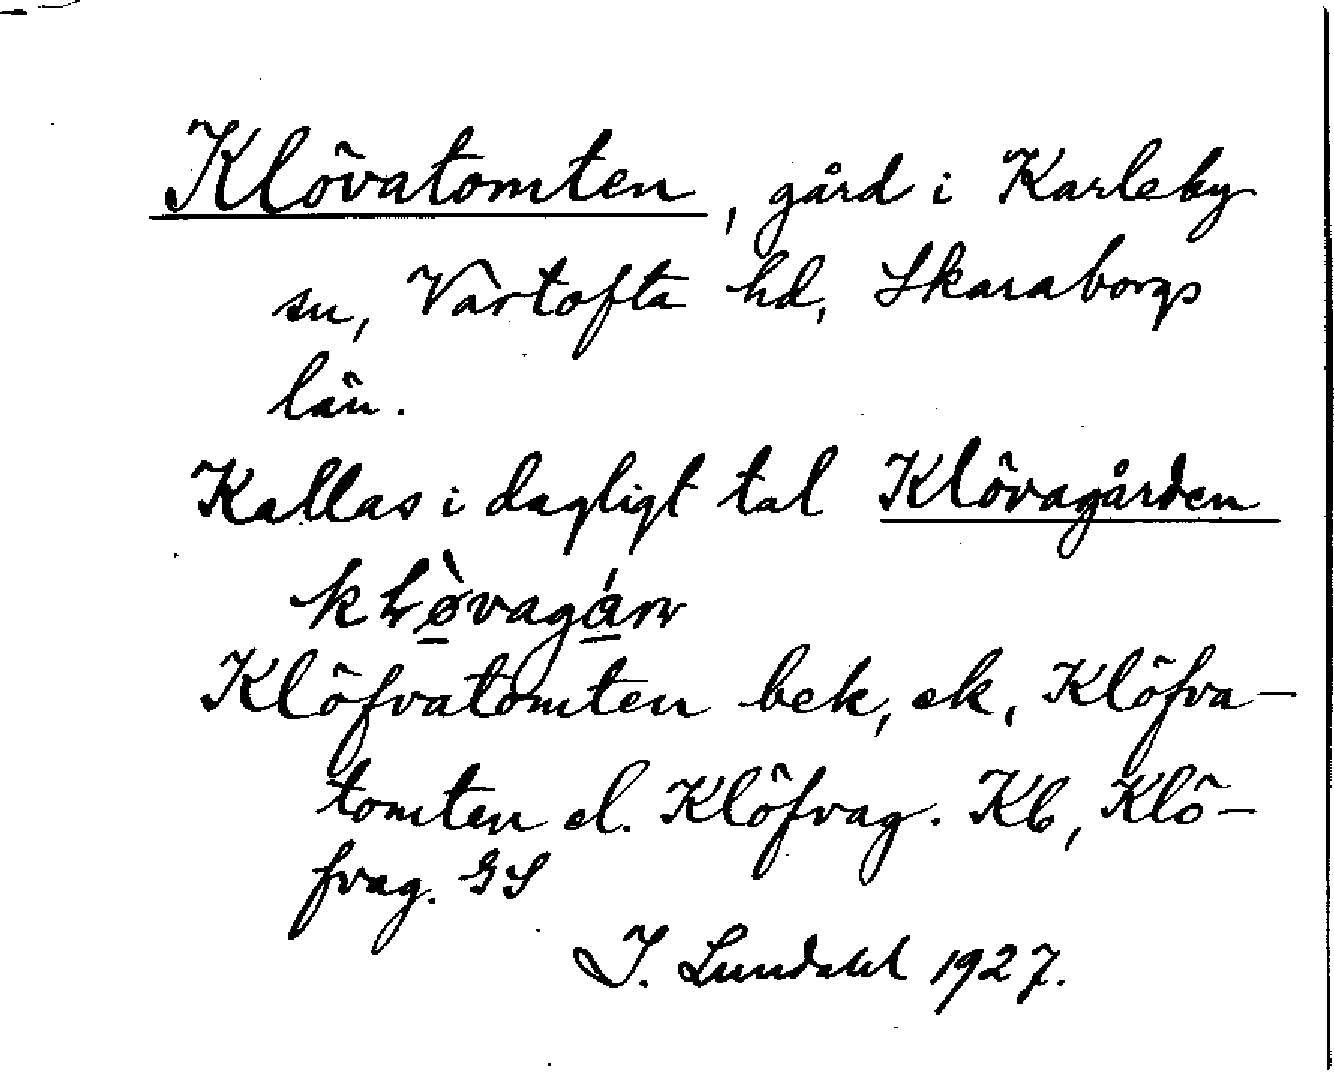 Klövatomten, gård i Karleby
sn, Vartofta hd, Skaraborgs
län.
Kallas i dagligt tal Klövagården
Klöfvatomten bek, ek, Klöfva-
tomten el. Klöfvag. Kb, Klö-
fvag. GS
I. Lundahl 1927.